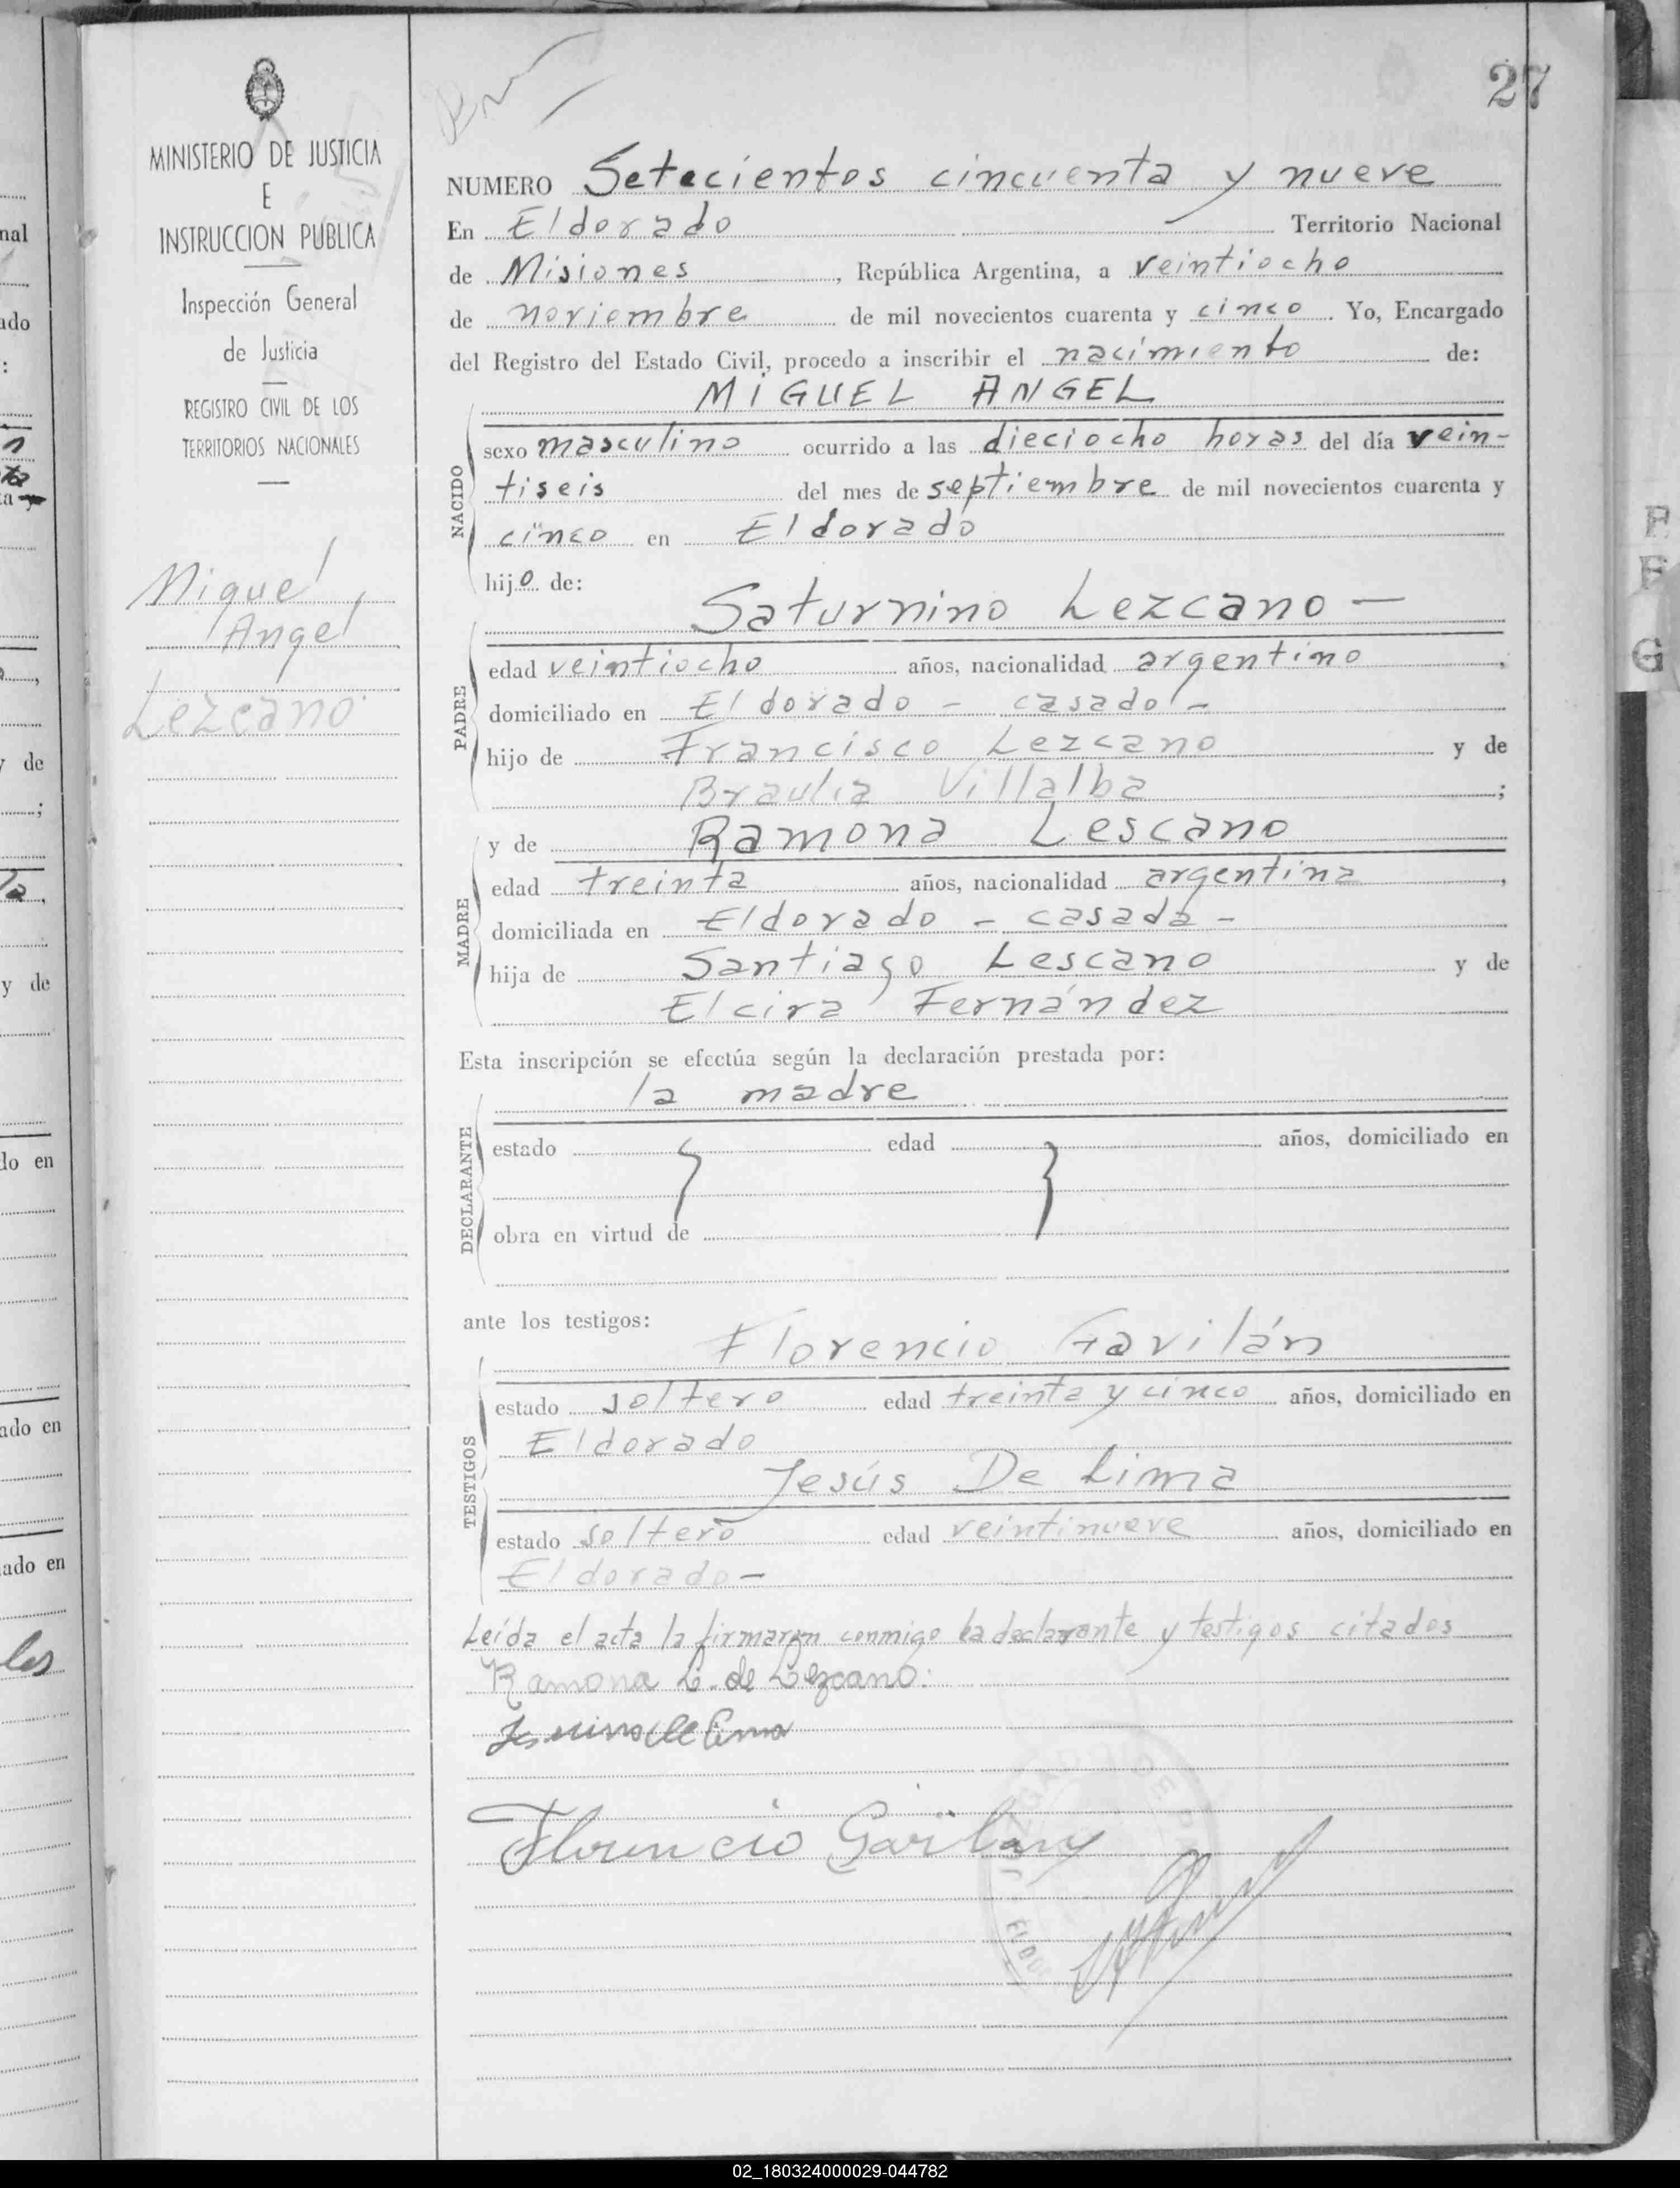 27
MINISTERIO DE JUSTICIA
E
INSTRUCCION PUBLICA
Inspección General
de Justicia
REGISTRO CIVIL DE LOS
TERRITORIOS NACIONALES
Miguel
Angel
Lezcano
NUMERO Setecientos cincuenta y nueve
En Eldorado Territorio Nacional
de Misiones, República Argentina, a veintiocho
de noviembre de mil novecientos cuarenta y cinco. Yo, Encargado
del Registro del Estado Civil, procedo a inscribir el nacimiento de:
MIGUEL ANGEL
NACIDO
sexo masculino ocurrido a las dieciocho horas del día vein-
tiseis del mes de septiembre de mil novecientos cuarenta y
cinco en Eldorado
hijo de:
Saturnino Lezcano —
PADRE
edad veintiocho años, nacionalidad argentino,
domiciliado en Eldorado - casado -
hijo de Francisco Lezcano y de
Braulia Villalba;
y de Ramona Lescano
MADRE
edad treinta años, nacionalidad argentina,
domiciliada en Eldorado - casada -
hija de Santiago Lescano y de
Elcira Fernández
Esta inscripción se efectúa según la declaración prestada por:
la madre
DECLARANTE
estado edad años, domiciliado en
obra en virtud de
ante los testigos:
Florencio Gavilán
TESTIGOS
estado soltero edad treinta y cinco años, domiciliado en
Eldorado
Jesús De Lima
estado soltero edad veintinueve años, domiciliado en
Eldorado -
Leída el acta la firmaron conmigo la declarante y testigos citados
Ramona L. de Lezcano.
Florencio Gavilan
02_180324000029-044782